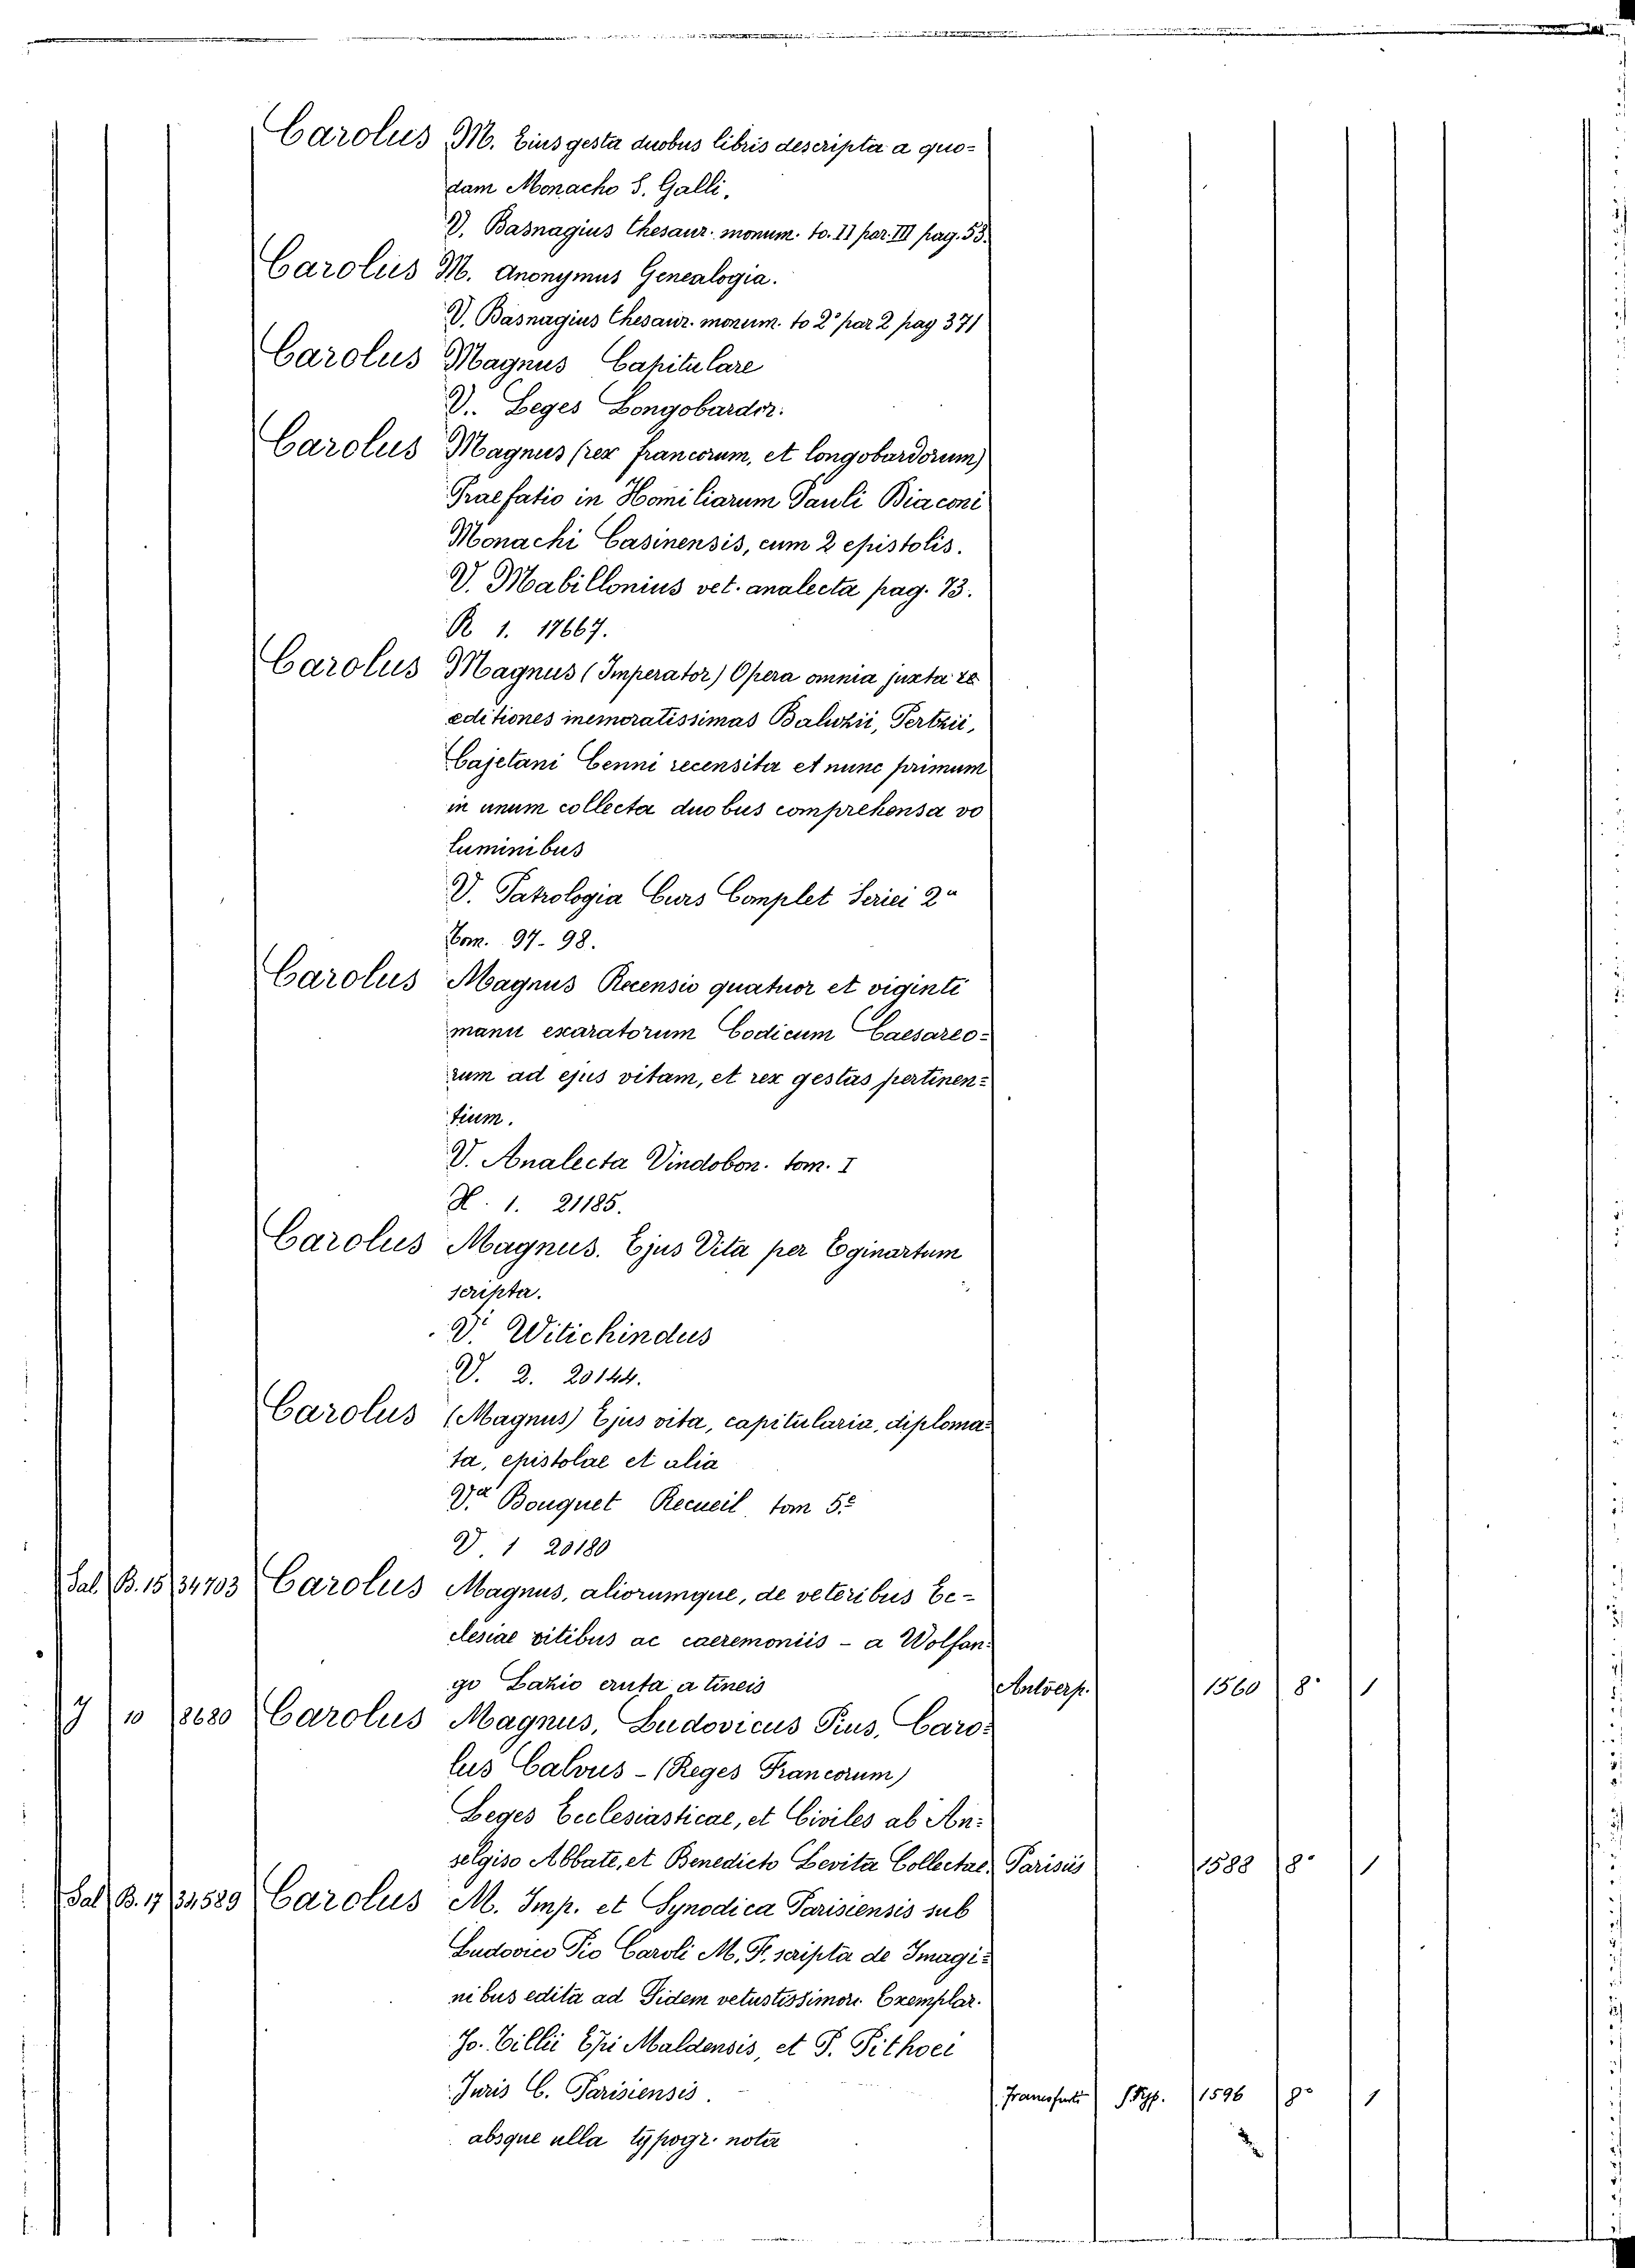 Carolus M. Eius gesta duobus libris descripta a quo=
dam Monacho S. Galli.
V. Basnagius Thesaur. monum. to. II par. III pag. 53.
Carolus M. Anonymus Genealogia.
V. Basnagius Thesaur. monum. to 2° par 2 pag 371
Carolus Magnus Capitulare
V. Leges Longobardor.
Carolus Magnus (rex francorum, et longobardorum)
Praefatio in Homiliarum Pauli Diaconi
Monachi Casinensis, cum 2 epistolis.
V. Mabillonius vet. analecta pag. 73.
R 1. 17667.
Carolus Magnus (Imperator) Opera omnia juxta
editiones memoratissimas Baluzii, Pertzii,
Cajetani Cenni recensita et nunc primum
in unum collecta duobus comprehensa vo
luminibus
V. Patrologia Curs Complet Seriei 2a
Tom. 97-98.
Carolus Magnus Recensio quatuor et viginti
manu exaratorum Codicum Caesareo=
rum ad ejus vitam, et rex gestas pertinen=
tium.
V. Analecta Vindobon. tom. I
H. 1. 21185.
Carolus Magnus. Ejus Vita per Eginartum
scripta.
V. Witichindus
V. 2. 20144.
Carolus (Magnus) Ejus vita, capitularia, diploma=
ta, epistolae et alia
Va Bouquet Recueil tom 5°
V. 1 20180
Sal. B. 15 34703 Carolus Magnus, aliorumque, de veteribus Ec=
clesiae ritibus ac caeremoniis - a Wolfan=
go Lazio eruta a tineis Antverp. 1560 8° 1
J 10 8680 Carolus Magnus, Ludovicus Pius, Caro=
lus Calvus - (Reges Francorum)
Leges Ecclesiasticae, et Civiles ab An=
selgiso Abbate, et Benedicto Levita Collectae. Parisiis 1588 8° 1
Sal B. 17 34589 Carolus M. Imp. et Synodica Parisiensis sub
Ludovico Pio Caroli M. F. scripta de Imagi=
nibus edita ad Fidem vetustissimor. Exemplar.
Jo. Tillii Epi Maldensis, et P. Pithoei
Juris C. Parisiensis. Francofurti Typ. 1596 8° 1
absque ulla typogr. nota